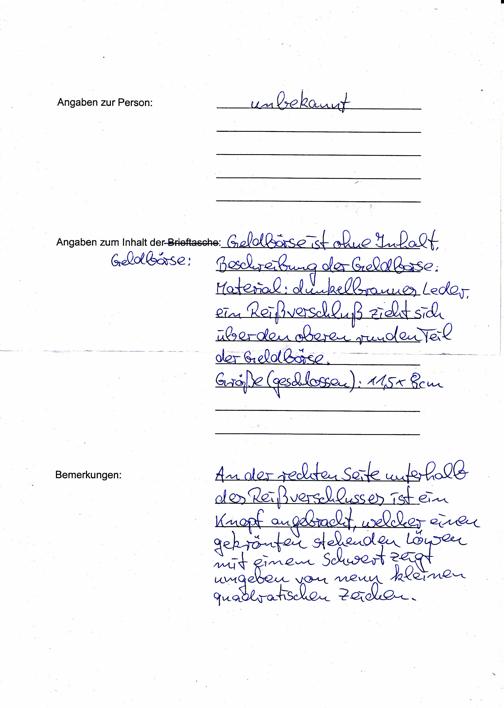 Angaben zur Person: unbekannt
Angaben zum Inhalt der Brieftasche: Geldbörse ist ohne Inhalt.
Geldbörse: Beschreibung der Geldbörse:
Material: dunkelbraunes Leder,
ein Reißverschluß zieht sich
über den oberen runden Teil
der Geldbörse.
Größe (geschlossen): 11,5 x 8 cm
Bemerkungen: An der rechten Seite unterhalb
des Reißverschlusses ist ein
Knopf angebracht, welcher einen
gekrönten stehenden Löwen
mit einem Schwert zeigt
umgeben von neun kleinen
quadratischen Zeichen.